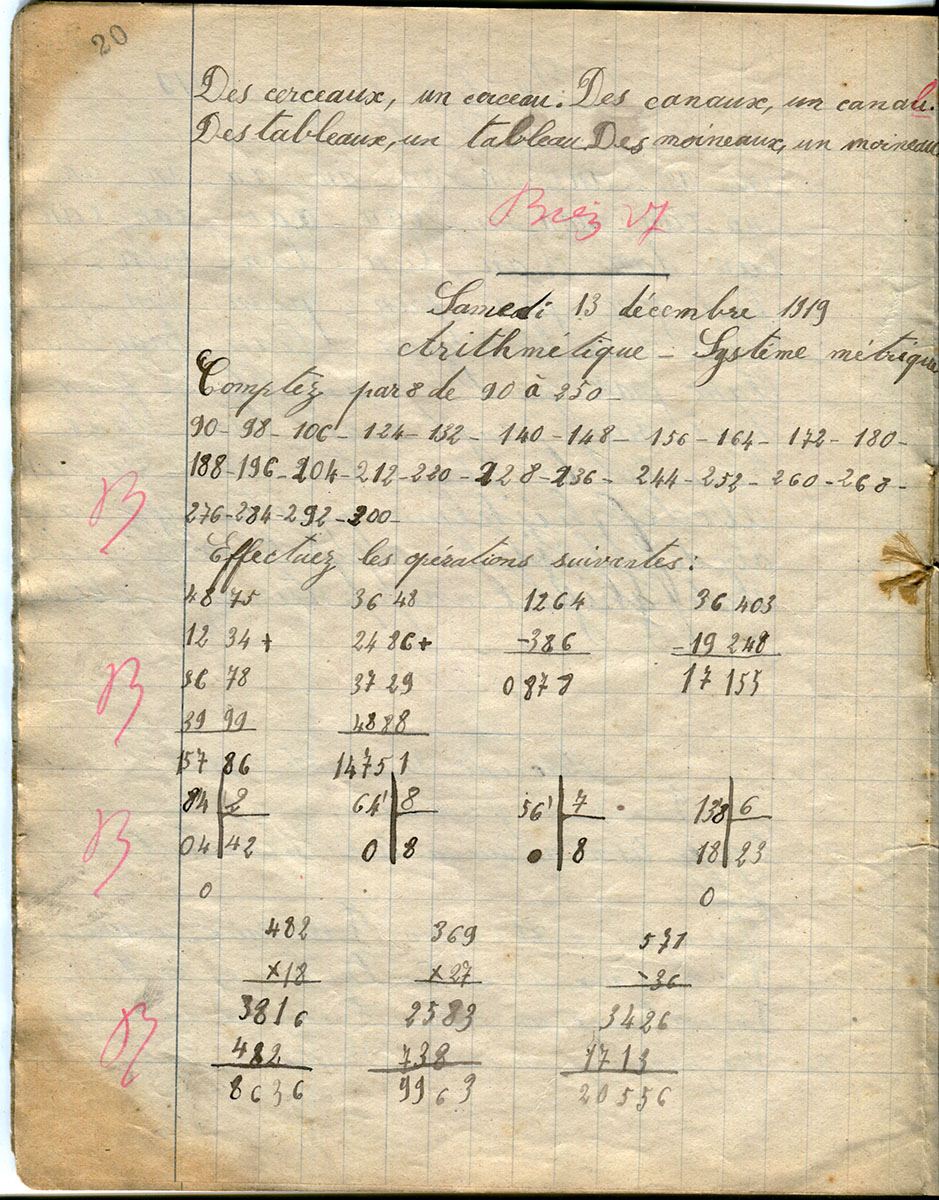 20
Des cerceaux, un cerceau. Des canaux, un canal.
Des tableaux, un tableau. Des moineaux, un moineau
Samedi 13 décembre 1919
Arithmétique - Système métrique
Comptez par 8 de 90 à 250 -
90 - 98 - 106 - 124 - 132 - 140 - 148 - 156 - 164 - 172 - 180 -
188 - 196 - 204 - 212 - 220 - 228 - 236 - 244 - 252 - 260 - 268 -
276 - 284 - 292 - 300 -
Effectuez les opérations suivantes :
48 75 36 48 1264 36 403
12 34 + 24 86 + -386 -19 248
36 78 37 29 0878 17 155
39 99 48 88
157 86 1475 1
84 2 64' 8 56' 7 13'8 6
04 42 0 8 0 8 18 23
0 0
482 369 571
×18 ×27 -36
3816 2583 3426
482 738 1713
8636 9963 20556
B
B
B
B